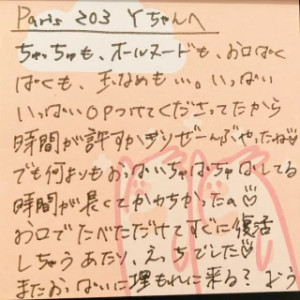 Paris 203 Yちゃんへ
ちゅっちゅも、オールヌードも、お口ぱく
ぱくも、玉なめも…。いっぱい
いっぱいOPつけてくださってたから
時間が許すかぎりぜーんぶやったね♡
でも何よりもおっぱいちゅぱちゅぱしてる
時間が長くてかわちかったɑ♡
お口でたべただけてすぐに復活
しちゃうあたり、えっちでした♡
またおっぱいに埋もれに来る?まう